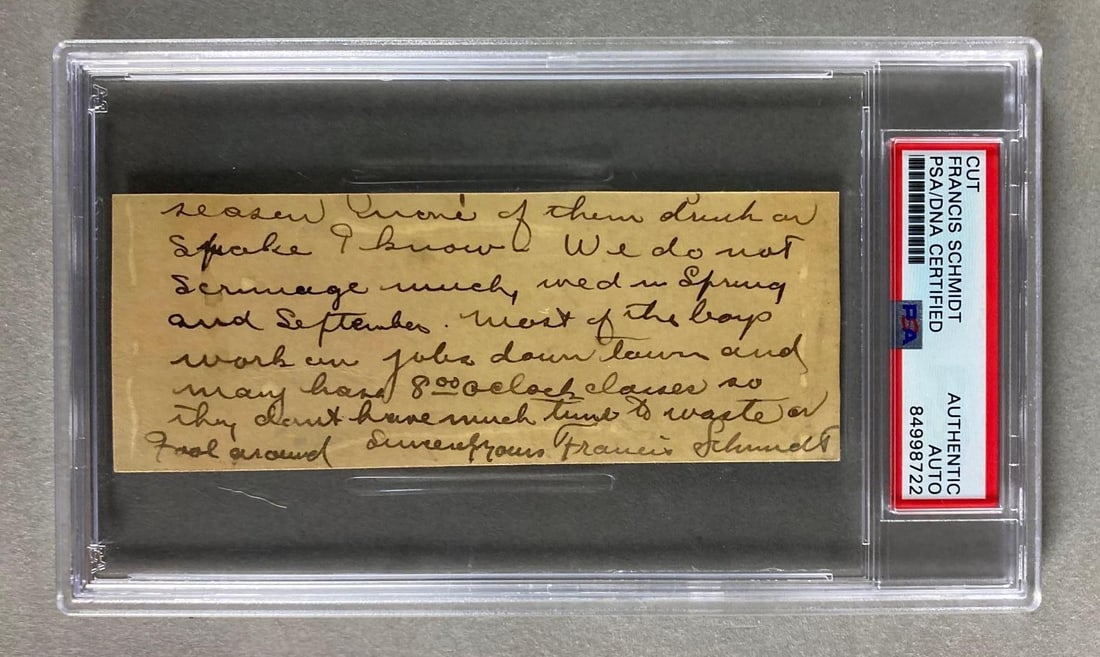 season none of them drink or
Smoke I know. We do not
Scrimage much, wed in Spring
and September. Most of the boys
work on jobs down town and
many have 8:00 oclock classes so
they dont have much time to waste or
Fool around Sincerely yours Francis Schmidt
CUT
FRANCIS SCHMIDT
PSA/DNA CERTIFIED
PSA
AUTHENTIC
AUTO
84998722